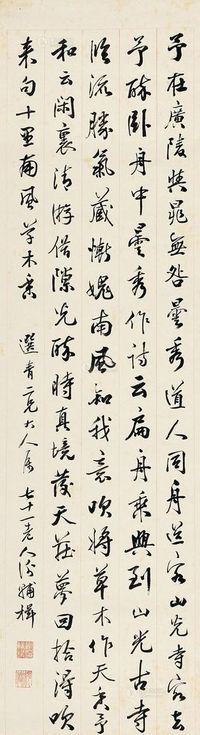 予在廣陵與晁無咎曇秀道人同舟送客山光寺客去
予醉臥舟中曇秀作詩云扁舟乘興到山光古寺
臨流勝氣藏慚愧南風知我意吹將草木作天香予
和云閑裏清游借隙光醉時真境發天藏夢回拾得吹
來句十里南風草木香
選青二兄大人屬 七十一老人